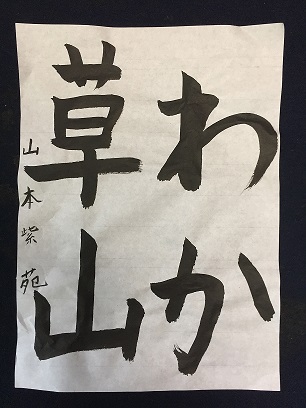 わか
草山
山本紫苑